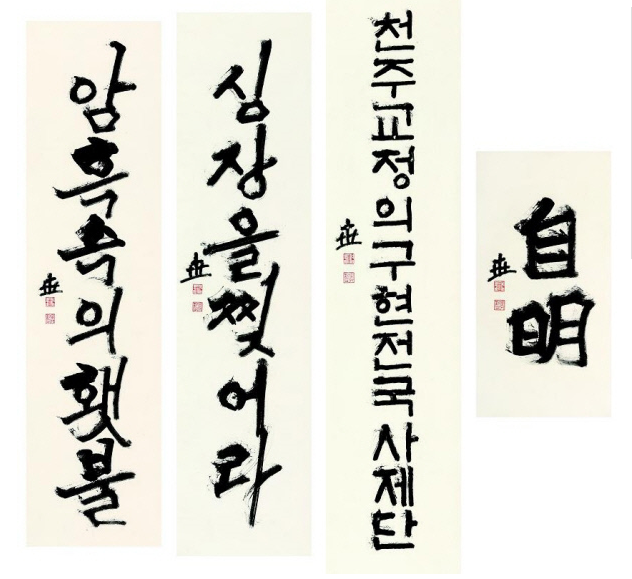 암흑속의횃불
심장을찢어라
천주교정의구현전국사제단
自明